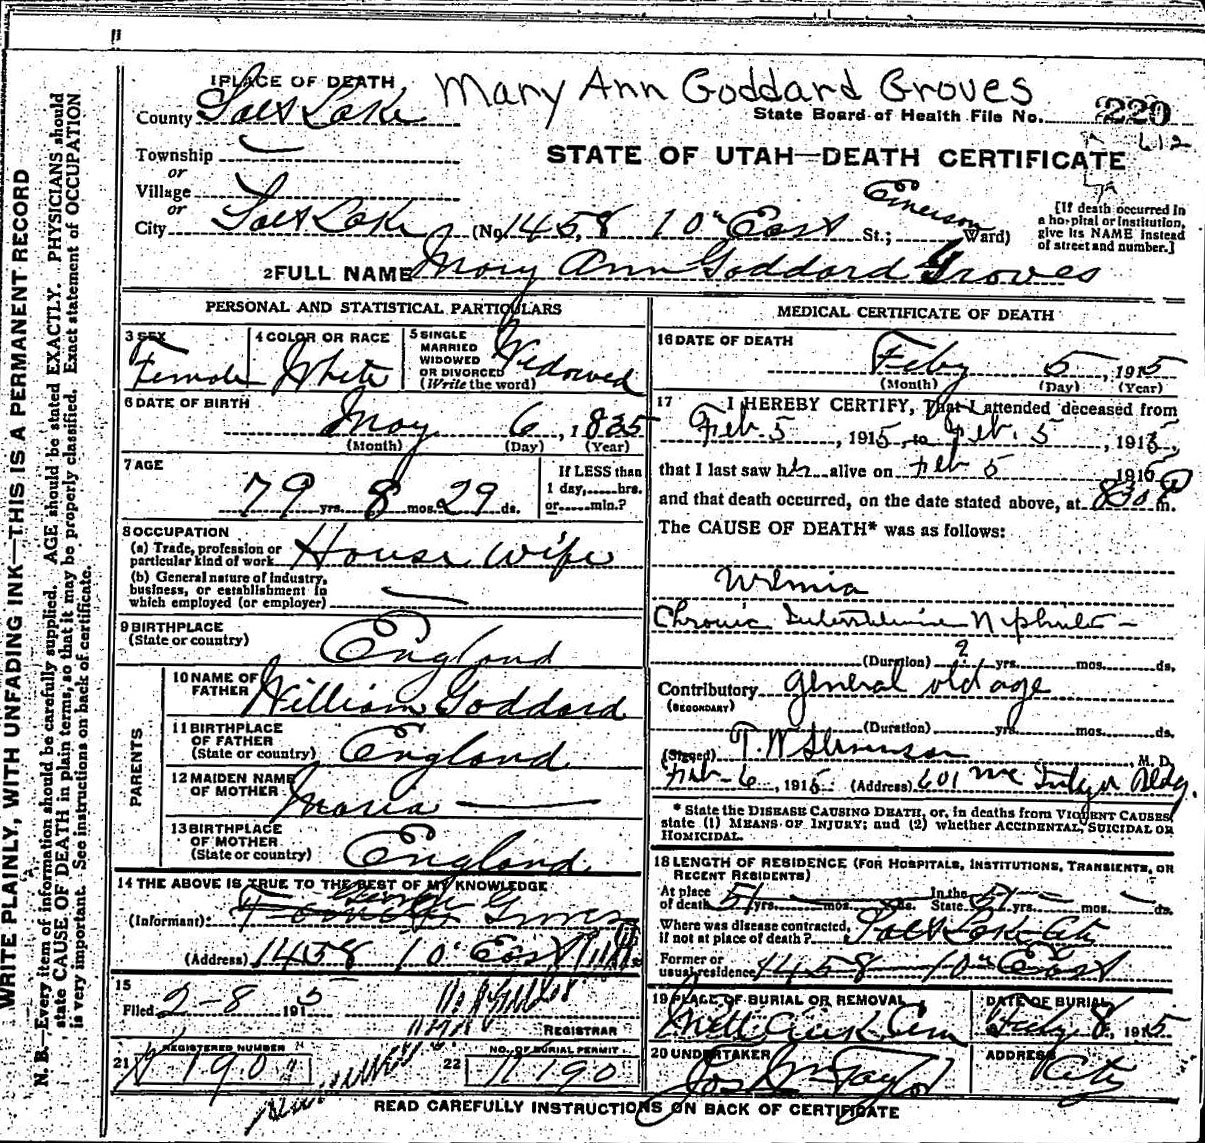 WRITE PLAINLY, WITH UNFADING INK—THIS IS A PERMANENT RECORD
N. B.—Every item of information should be carefully supplied. AGE should be stated EXACTLY. PHYSICIANS should
state CAUSE OF DEATH in plain terms, so that it may be properly classified. Exact statement of OCCUPATION
is very important. See instructions on back of certificate.
1 PLACE OF DEATH
Mary Ann Goddard Groves
County Salt Lake
State Board of Health File No. 220
612
Township
or
Village
or
STATE OF UTAH—DEATH CERTIFICATE
City Salt Lake (No. 1458 10" East St.; Emerson Ward)
[If death occurred in
a hospital or institution,
give its NAME instead
of street and number.]
2 FULL NAME Mary Ann Goddard Groves
PERSONAL AND STATISTICAL PARTICULARS
3 SEX Female
4 COLOR OR RACE White
5 SINGLE
MARRIED
WIDOWED
OR DIVORCED
(Write the word)
Widowed
6 DATE OF BIRTH
May 6, 1835
(Month) (Day) (Year)
7 AGE
79 yrs. 8 mos. 29 ds.
If LESS than
1 day,......hrs.
or......min.?
8 OCCUPATION
(a) Trade, profession or
particular kind of work House wife
(b) General nature of industry,
business, or establishment in
which employed (or employer)
9 BIRTHPLACE
(State or country) England
PARENTS
10 NAME OF
FATHER William Goddard
11 BIRTHPLACE
OF FATHER
(State or country) England
12 MAIDEN NAME
OF MOTHER Maria
13 BIRTHPLACE
OF MOTHER
(State or country) England
14 THE ABOVE IS TRUE TO THE BEST OF MY KNOWLEDGE
(Informant) Groves
(Address) 1458 10" East
15
Filed 2-8 1915
REGISTRAR
21 REGISTERED NUMBER
190
22 NO. OF BURIAL PERMIT
190
MEDICAL CERTIFICATE OF DEATH
16 DATE OF DEATH
Feby 5, 1915
(Month) (Day) (Year)
17 I HEREBY CERTIFY, That I attended deceased from
Feb. 5, 1915, to Feb. 5, 1915,
that I last saw her alive on Feb 5 1915
and that death occurred, on the date stated above, at 830 P m.
The CAUSE OF DEATH* was as follows:
Uremia
Chronic Interstitial Nephritis
(Duration) 2 yrs. mos. ds.
Contributory general old age
(SECONDARY)
(Duration) yrs. mos. ds.
(Signed) T. W. Stevenson, M. D.
Feb-6, 1915 (Address) 601 McIntyre Bldg.
* State the DISEASE CAUSING DEATH, or, in deaths from VIOLENT CAUSES,
state (1) MEANS OF INJURY; and (2) whether ACCIDENTAL, SUICIDAL OR
HOMICIDAL.
18 LENGTH OF RESIDENCE (FOR HOSPITALS, INSTITUTIONS, TRANSIENTS, OR
RECENT RESIDENTS)
At place
of death 51 yrs. mos. ds.
In the
State 51 yrs. mos. ds.
Where was disease contracted,
if not at place of death? Salt Lake City
Former or
usual residence 1458 10" East
19 PLACE OF BURIAL OR REMOVAL
Mill Creek Cem
DATE OF BURIAL
Feby 8, 1915
20 UNDERTAKER
Jos Wm Taylor
ADDRESS
City
READ CAREFULLY INSTRUCTIONS ON BACK OF CERTIFICATE